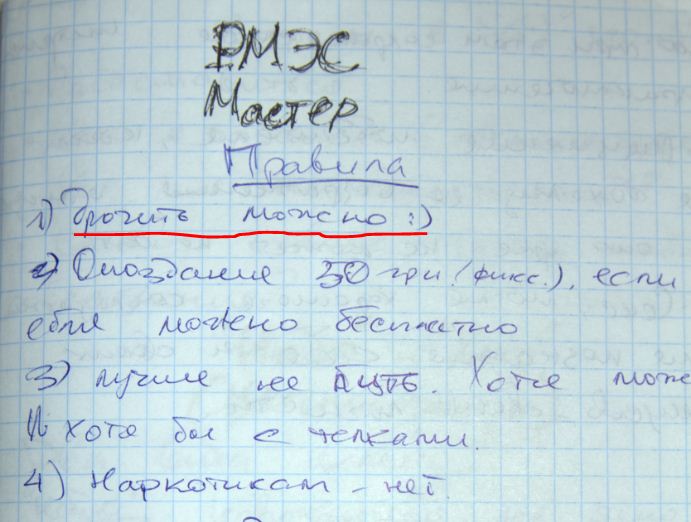 РМЭС
Мастер
Правила
1) Дрочить можно :)
2) Опоздание 50 грн. (фикс.), если
ебля можно бесплатно
3) лучше не Хотя може
И хотя бы с телками.
4) Наркотикам - нет.